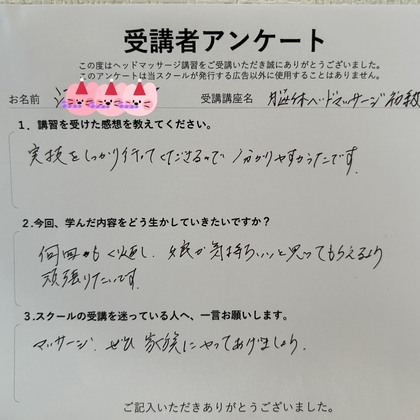 受講者アンケート
この度はヘッドマッサージ講習をご受講いただき誠にありがとうございました。
このアンケートは当スクールが発行する広告以外に使用することはありません。
お名前 受講講座名 脳休ヘッドマッサージ初級
1．講習を受けた感想を教えてください。
実技をしっかり行ってくださるので、分かりやすかったです。
2.今回、学んだ内容をどう生かしていきたいですか？
何回もくり返し、娘が気持ちいいと思ってもらえるよう
頑張りたいです。
3.スクールの受講を迷っている人へ、一言お願いします。
マッサージ、ぜひ家族にやってあげましょう。
ご記入いただきありがとうございました。